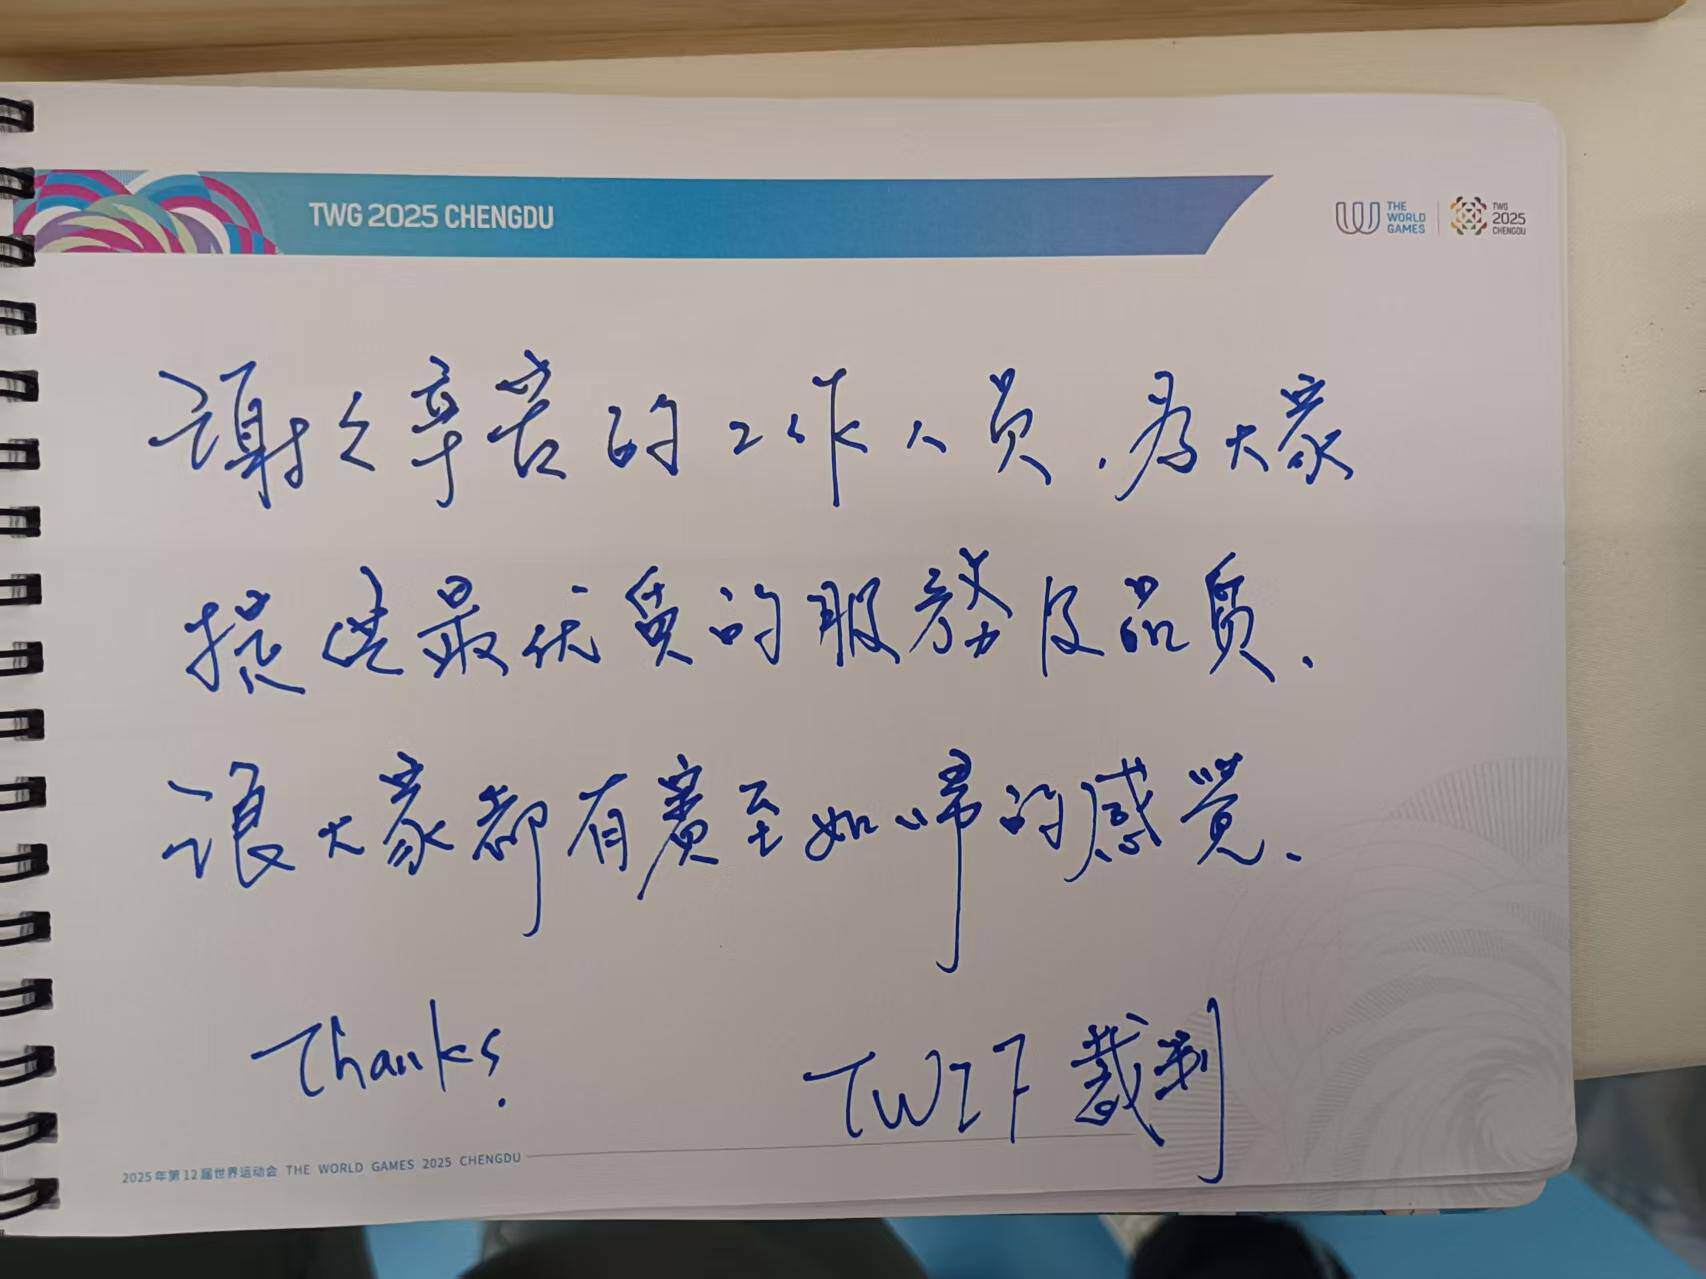 TWG 2025 CHENGDU
THE
WORLD
GAMES
TWG
2025
CHENGDU
謝々辛苦的工作人员.為大家
提供最优質的服務及品質.
讓大家都有賓至如歸的感覺.
Thanks.
TWIF 裁判
2025年第12届世界运动会 THE WORLD GAMES 2025 CHENGDU